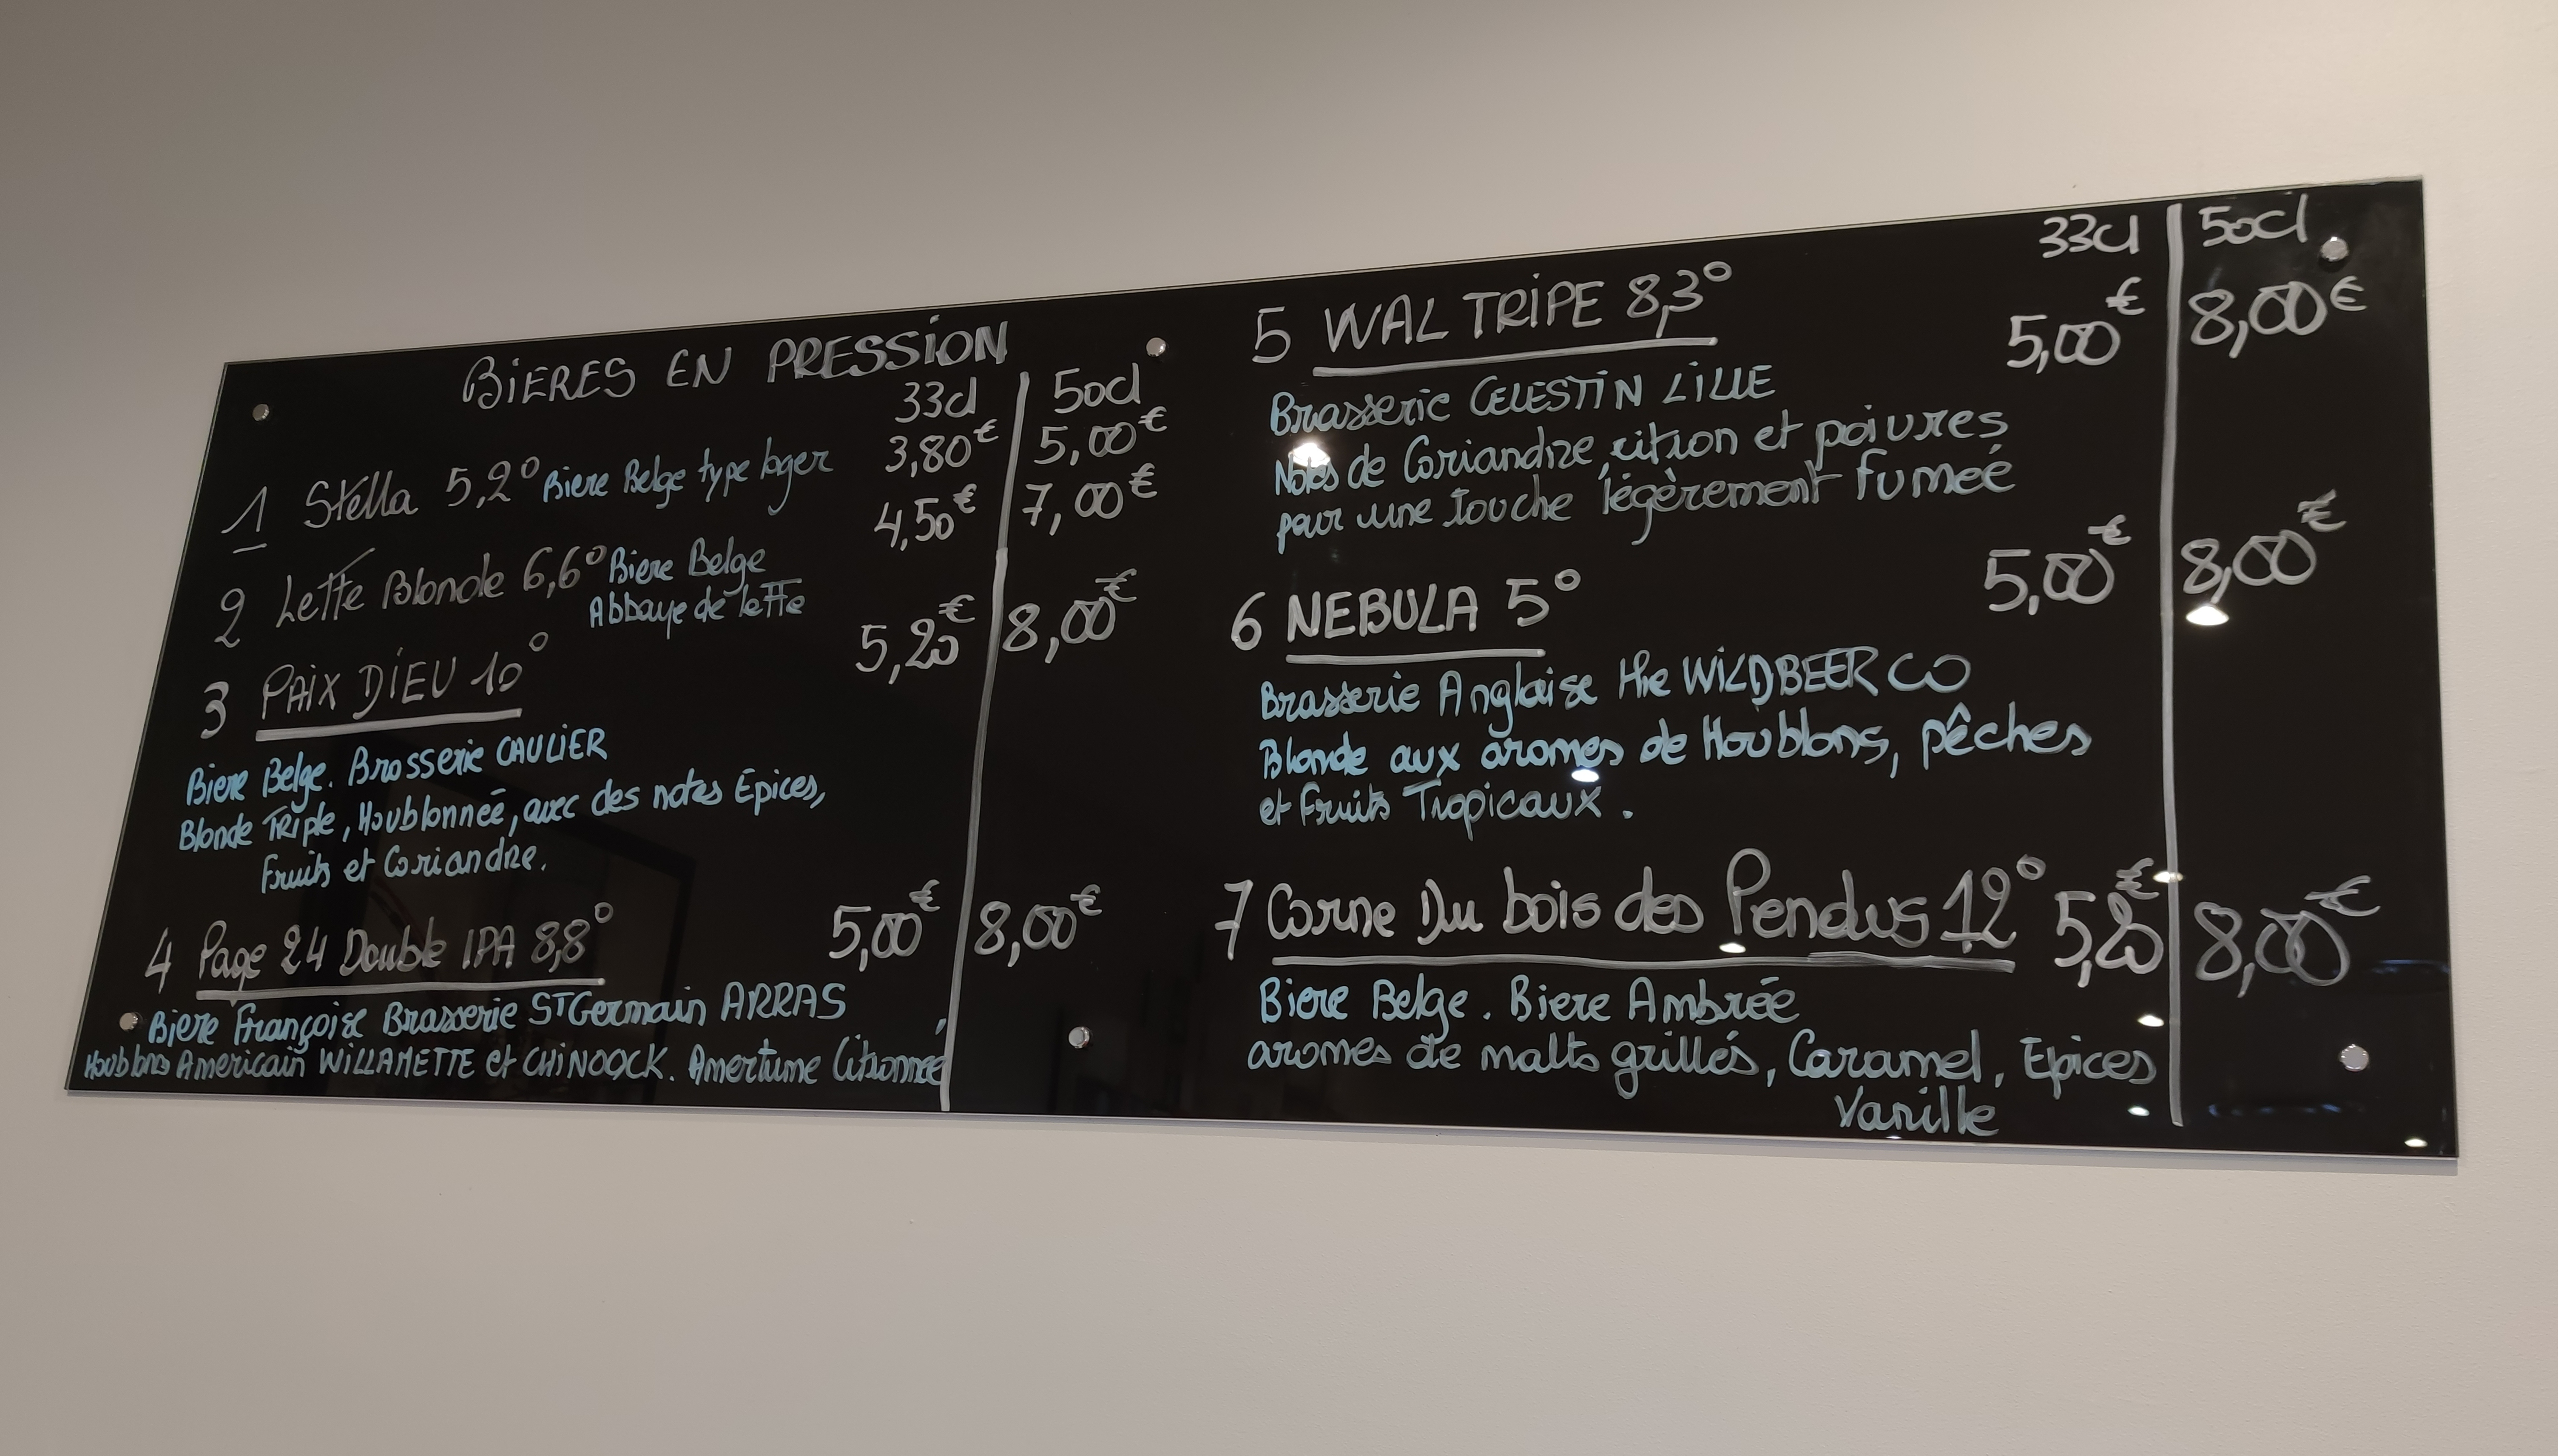 BIERES EN PRESSION
33cl 50cl
1 Stella 5,2° Biere Belge type lager 3,80€ 5,00€
2 Leffe Blonde 6,6° Biere Belge 4,50€ 7,00€
Abbaye de leffe
3 PAIX DIEU 10° 5,20€ 8,00€
Biere Belge. Brasserie CAULIER
Blonde TRiple, Houblonneé, avec des notes Epices,
Fruits et Coriandre.
4 Page 24 Double IPA 8,8° 5,00€ 8,00€
Biere Françaisе Brasserie ST Germain ARRAS
Houblons Americain WILLAMETTE et CHINOOCK. Amertume Citronneé
33cl 50cl
5 WAL TRIPE 8,3° 5,00€ 8,00€
Brasserie CELESTIN LILLE
Notes de Coriandre, citron et poivres
pour une touche légèrement fumeé
6 NEBULA 5° 5,00€ 8,00€
Brasserie Anglaise the WILDBEER CO
Blonde aux aromes de Houblons, pêches
et Fruits Tropicaux.
7 Corne Du bois des Pendus 12° 5,20€ 8,00€
Biere Belge. Biere Ambrée
aromes de malts grillés, Caramel, Epices
Vanille